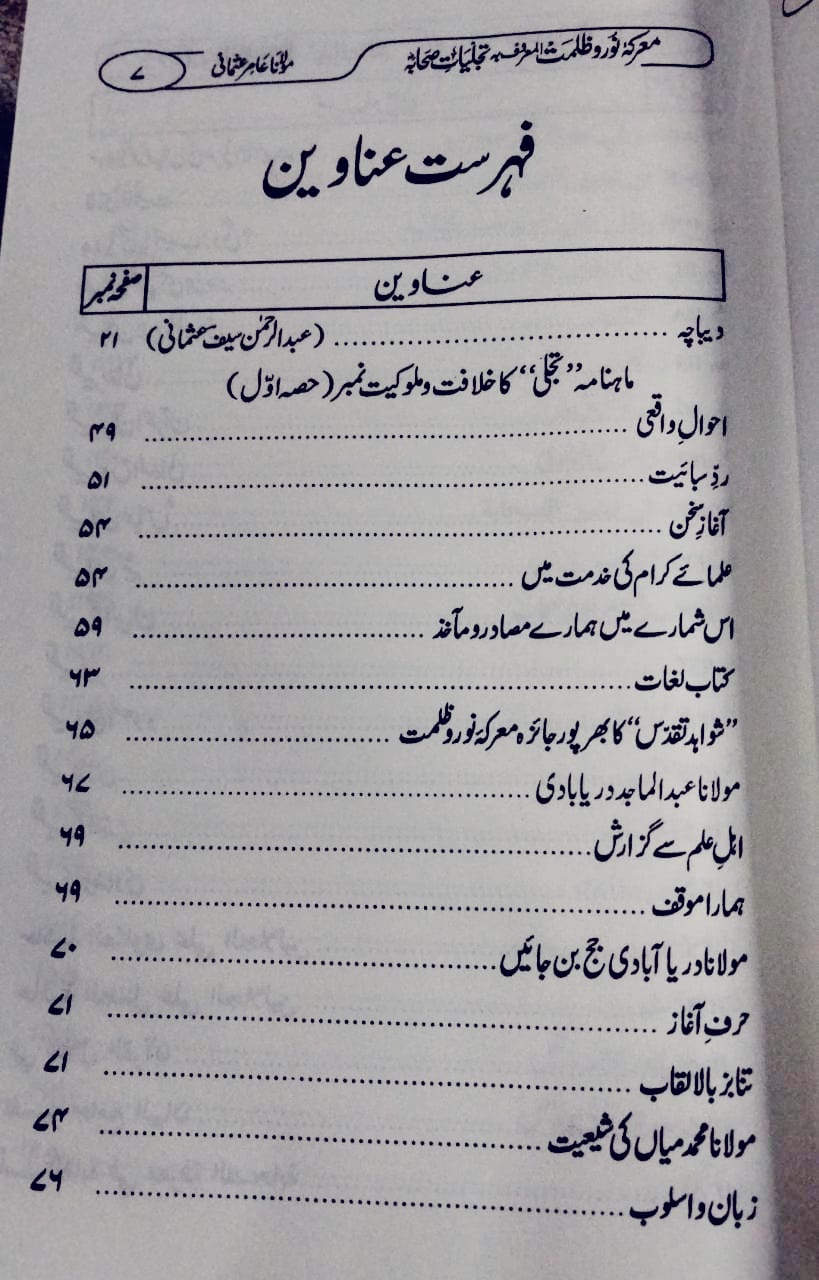 معرکۂ نور و ظلمت المعروف بہ تجلیاتِ صحابہؓ مولانا عامر عثمانی ۷
فہرست عناوین
عناوین صفحہ نمبر
دیباچہ ........ (عبدالرحمٰن سیف عثمانی) ۲۱
ماہنامہ ”تجلی“ کا خلافت و ملوکیت نمبر (حصہ اوّل)
احوالِ واقعی ........ ۴۹
ردِّ سبائیت ........ ۵۱
آغازِ سخن ........ ۵۴
علمائے کرام کی خدمت میں ........ ۵۴
اس شمارے میں ہمارے مصادر و مآخذ ........ ۵۹
کتاب لغات ........ ۶۳
”شواہد تقدّس“ کا بھرپور جائزہ معرکۂ نور و ظلمت ........ ۶۵
مولانا عبدالماجد دریابادی ........ ۶۷
اہلِ علم سے گزارش ........ ۶۹
ہمارا موقف ........ ۶۹
مولانا دریا آبادی جج بن جائیں ........ ۷۰
حرفِ آغاز ........ ۷۱
تنابز بالالقاب ........ ۷۱
مولانا محمد میاں کی شیعیت ........ ۷۴
زبان و اسلوب ........ ۷۶